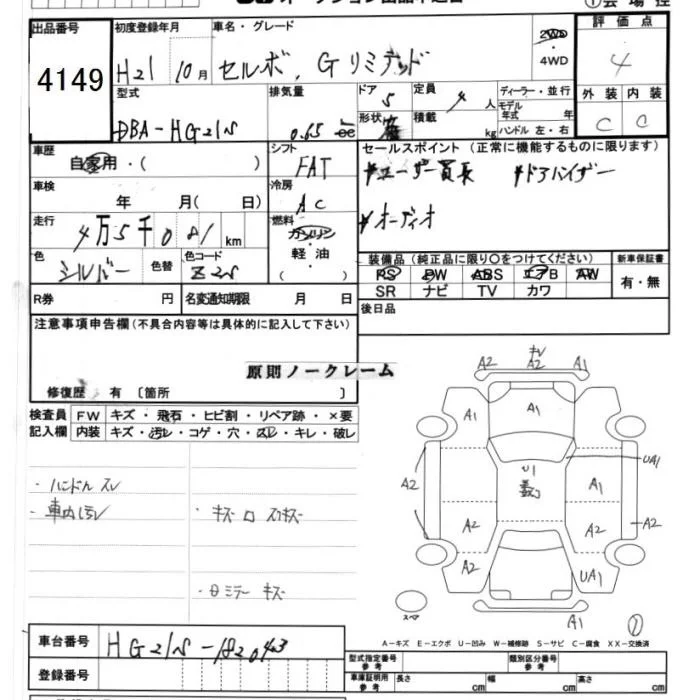 ①会場控
出品番号
4149
初度登録年月
H21 10月
車名・グレード
セルボ、Gリミテッド
2WD
・4WD
評価点
4
型式
DBA-HG21S
排気量
0.65 cc
ドア 5
形状 箱
定員 4 人
積載 kg
ディーラー・並行
モデル年式 年
ハンドル 左・右
外装 内装
C C
車歴
自家用・( )
シフト
FAT
セールスポイント(正常に機能するものに限ります)
#ユーザー買長 #ドアバイザー
#オーディオ
車検
年 月( 日)
冷房
AC
走行
4万5千081 km
燃料
ガソリン
軽・油
( )
色
シルバー
色替
色コード
Z2S
装備品(純正品に限り○をつけてください)
PS PW ABS エアB AW
SR ナビ TV カワ
新車保証書
有・無
R券 円
名変通知期限 月 日
後日品
注意事項申告欄(不具合内容等は具体的に記入して下さい)
原則ノークレーム
修復歴 有〔箇所 〕
検査員記入欄
FW キズ・飛石・ヒビ割・リペア跡・×要
内装 キズ・汚レ・コゲ・穴・スレ・キレ・破レ
・ハンドルスレ
・車内汚レ
・キズ ロ スリキズ
・ミラー キズ
A2 A2 A1
A1 A1
UA1
U1
A2 A1
A2 A1 A2
A2 UA1
A1
スペア
A-キズ E-エクボ U-凹み W-補修跡 S-サビ C-腐食 XX-交換済
車台番号
HG21S-182043
登録番号
型式指定番号 参考
類別区分番号 参考
車庫証明用 参考
長さ cm 幅 cm 高さ cm